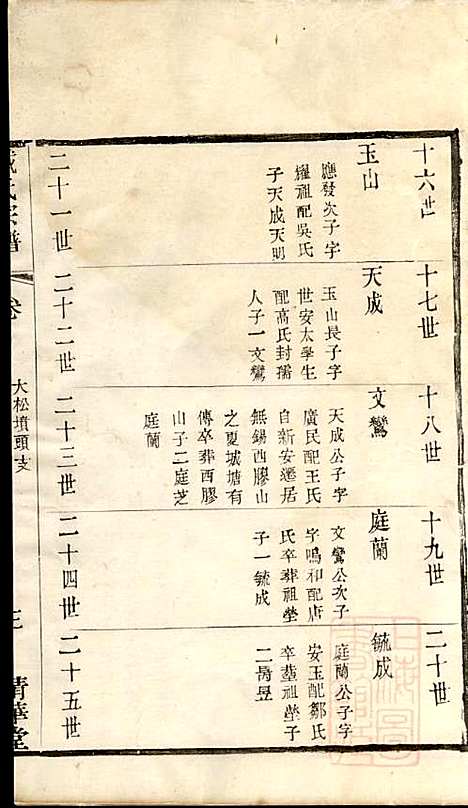 十六世
玉山
應發次子字
耀祖配吳氏
子天成天明
十七世
天成
玉山長子字
世安太學生
配高氏封孺
人子一文鸞
十八世
文鸞
天成公子字
廣民配王氏
自新安遷居
無錫西膠山
之夏城塘有
傳卒葬西膠
山子二庭芝
庭蘭
十九世
庭蘭
文鸞公次子
字鳴和配唐
氏卒葬祖塋
子一毓成
二十世
毓成
庭蘭公子字
安玉配鄒氏
卒葬祖塋子
二昺昱
二十一世
二十二世
二十三世
二十四世
二十五世
氏宗譜
卷
大松墳頭支
清華堂